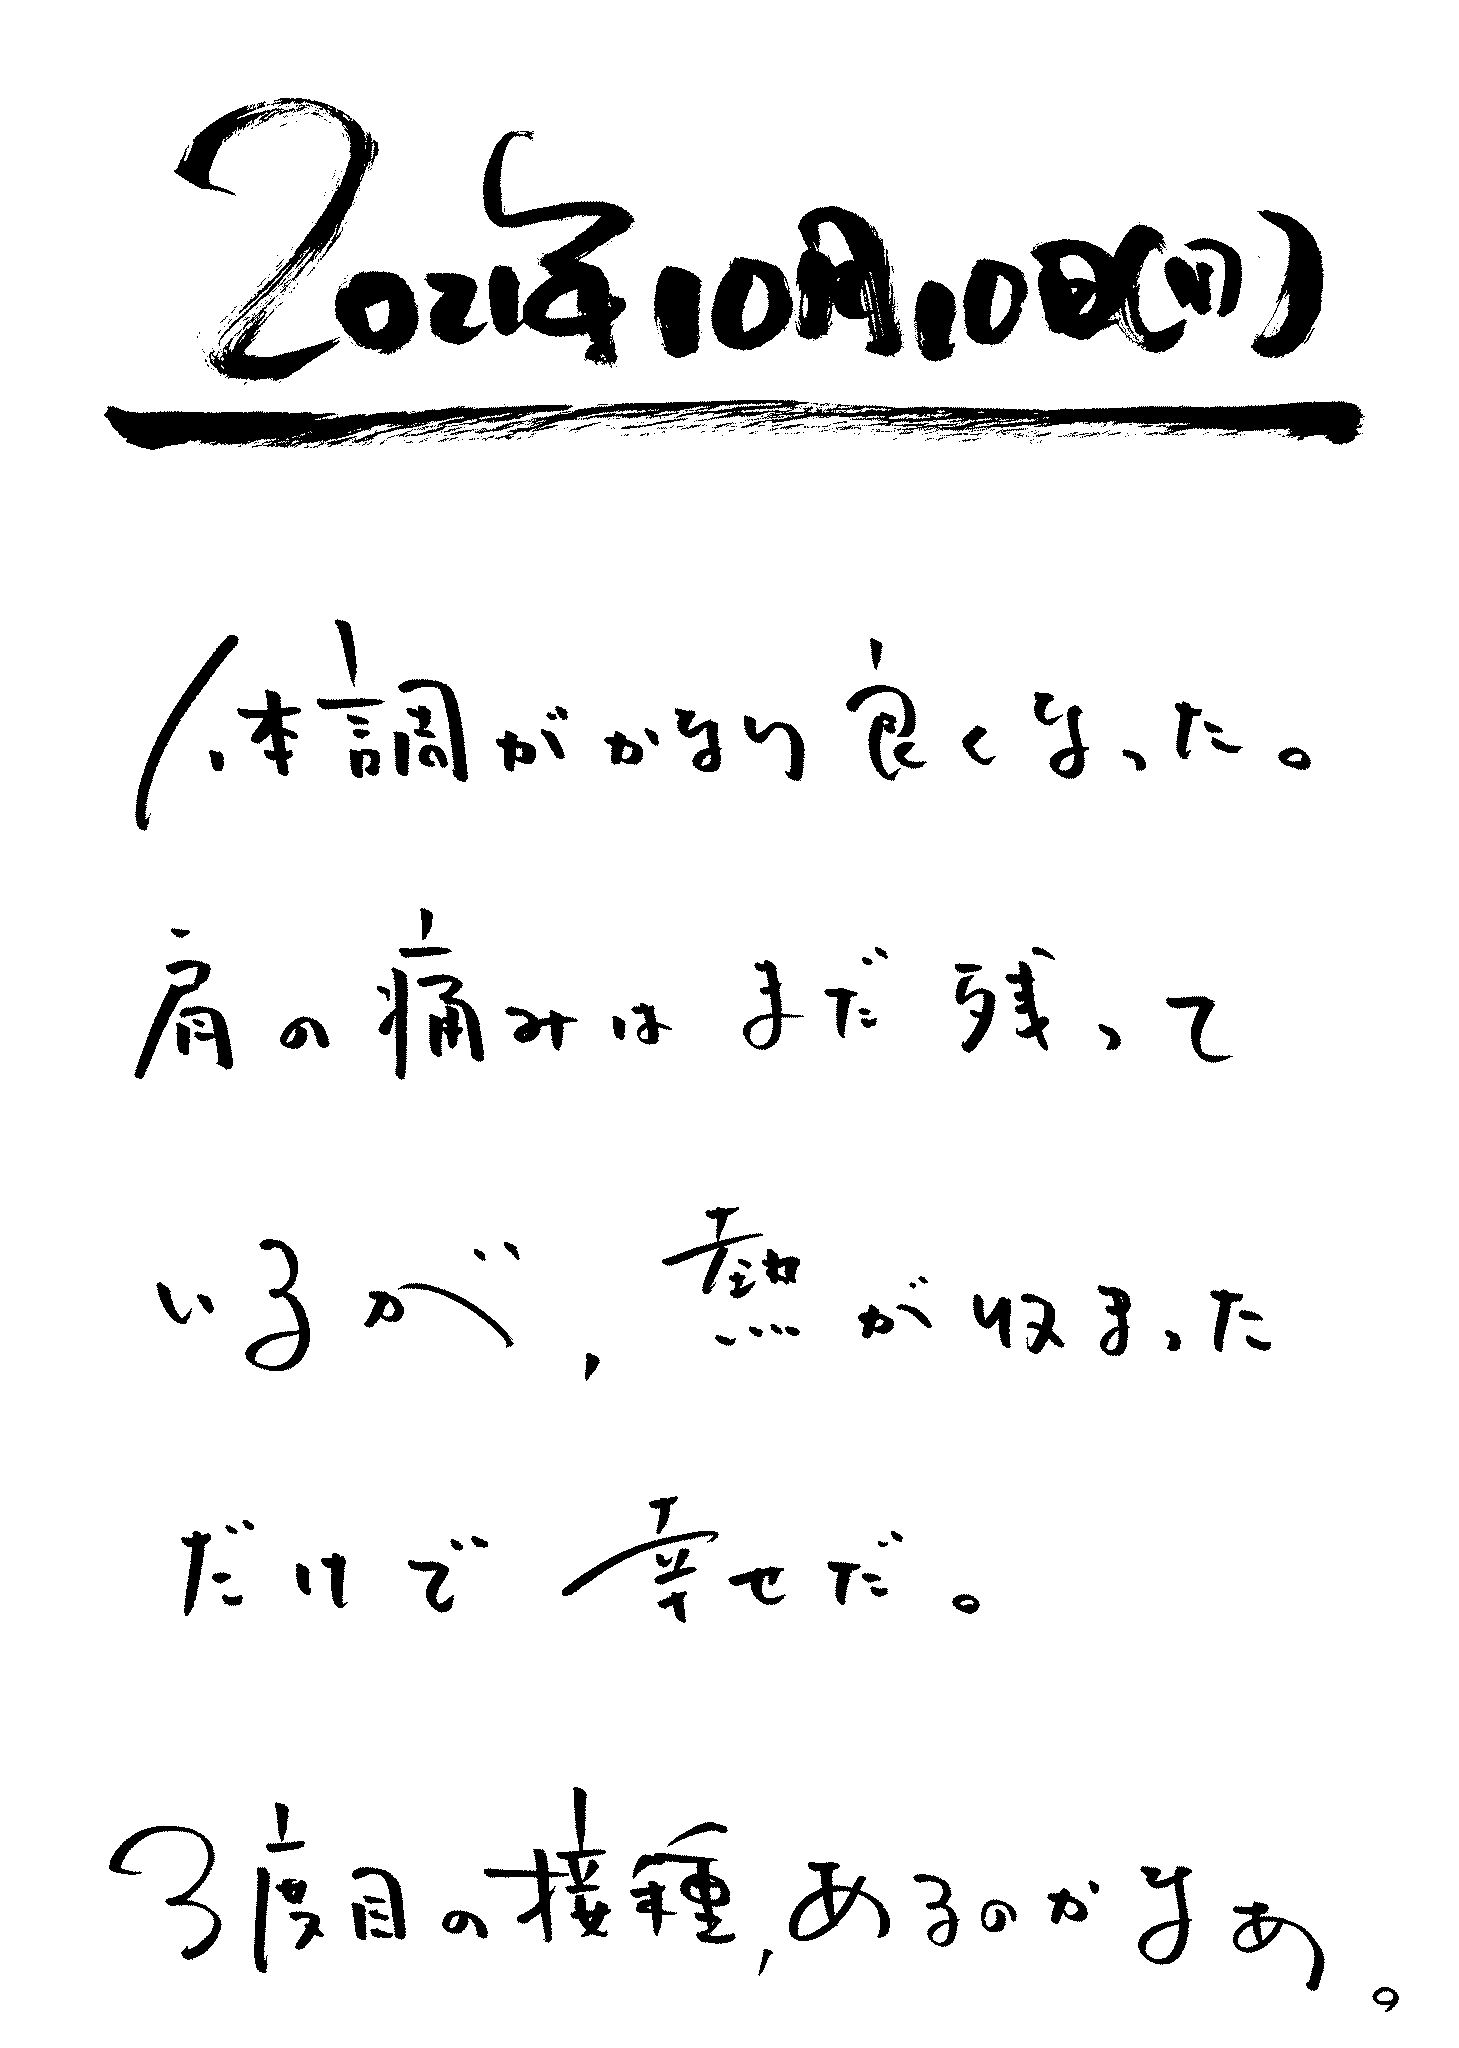 2021年10月10日(日)
体調がかなり良くなった。
肩の痛みはまだ残って
いるが、熱が収まった
だけで幸せだ。
3度目の接種、あるのかなあ。